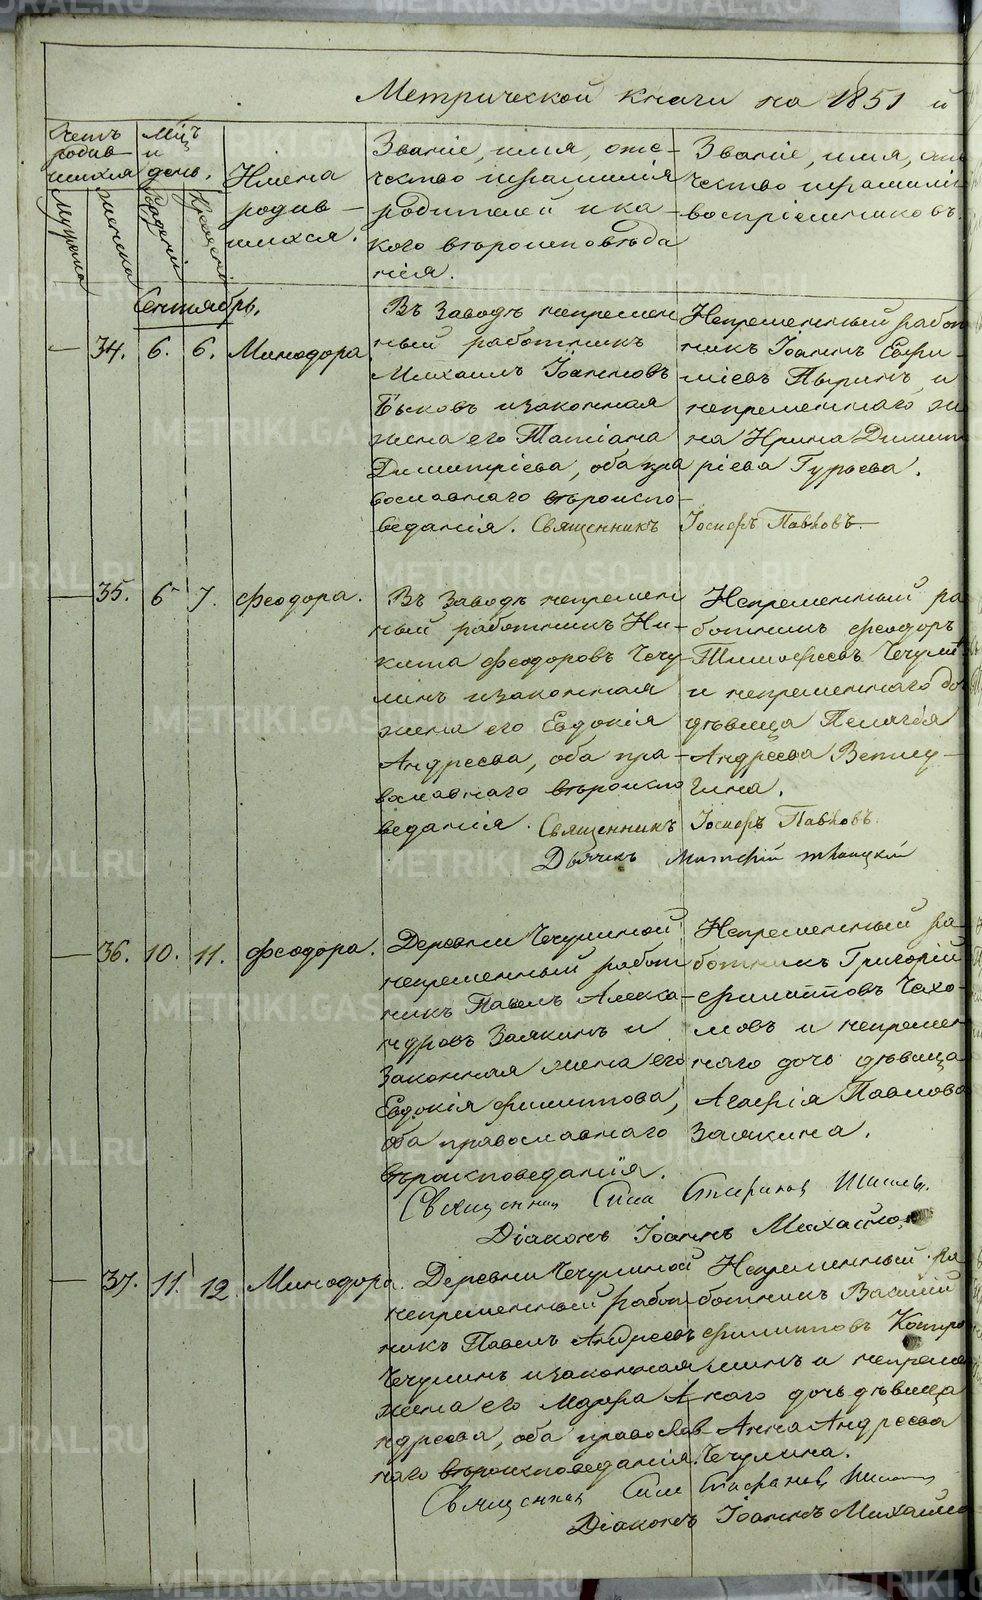 Метрической книги на 1851 й
Четъ родив-шихся
Мцъ и день.
Имена родив-шихся.
Званіе, имя, оте-
чество и фамилія
родителей и ка-
кого вѣроисповѣда
нія.
Званіе, имя, оте
чество и фамилія
воспріемниковъ.
Мужска
Женска
Рожденія
Крещенія
Сентябрь.
34. 6. 6. Минодора
Въ Заводѣ непремен
ный работникъ
Михаилъ Іоанновъ
Быковъ и законная
жена его Татіана
Димитріева, оба пра
вославнаго вѣроиспо-
веданія. Священникъ Іосифъ Павловъ.
Непременный работ
никъ Іоаннъ Евфи-
міевъ Пыринъ, и
непременнаго же
на Ирина Димит
ріева Гурьева.
35. 6 7. Феодора.
Въ Заводѣ непремен
ный работникъ Ни-
кита Феодоровъ Чечу-
линъ и законная
жена его Евдокія
Андреева, оба пра-
вославнаго вѣроиспо
веданія. Священникъ Іосифъ Павловъ.
Дьячекъ
Непременный ра
ботникъ Феодоръ
Тимофеевъ Чечули
и непременнаго до
дѣвица Пелагія
Андреева Ветлу-
гина.
36. 10. 11. Феодора.
Деревни Чечулиной
непременный работ
никъ Павелъ Алекса-
ндровъ Заякинъ и
Законная жена его
Евдокія Филиппова,
оба православнаго
вѣроисповеданія.
Непременный ра-
ботникъ Григорій
Филипповъ Чехо-
мовъ и непремен
наго дочь дѣвица
Агафія Павлова
Заякина.
Священникъ
Діаконъ Іоаннъ Михайло
37. 11. 12. Минодора.
Деревни Чечулиной
непременный работ
никъ Павелъ Андреевъ
Чечулинъ и законная
жена его Марфа А
ндреева, оба православ
наго вѣроисповеданія.
Непременный ра
ботникъ Василій
Филипповъ Костро
минъ и непремен
наго дочь дѣвица
Анна Андреева
Чечулина.
Священникъ
Діаконъ Іоаннъ Михайло
METRIKI.GASO-URAL.RU